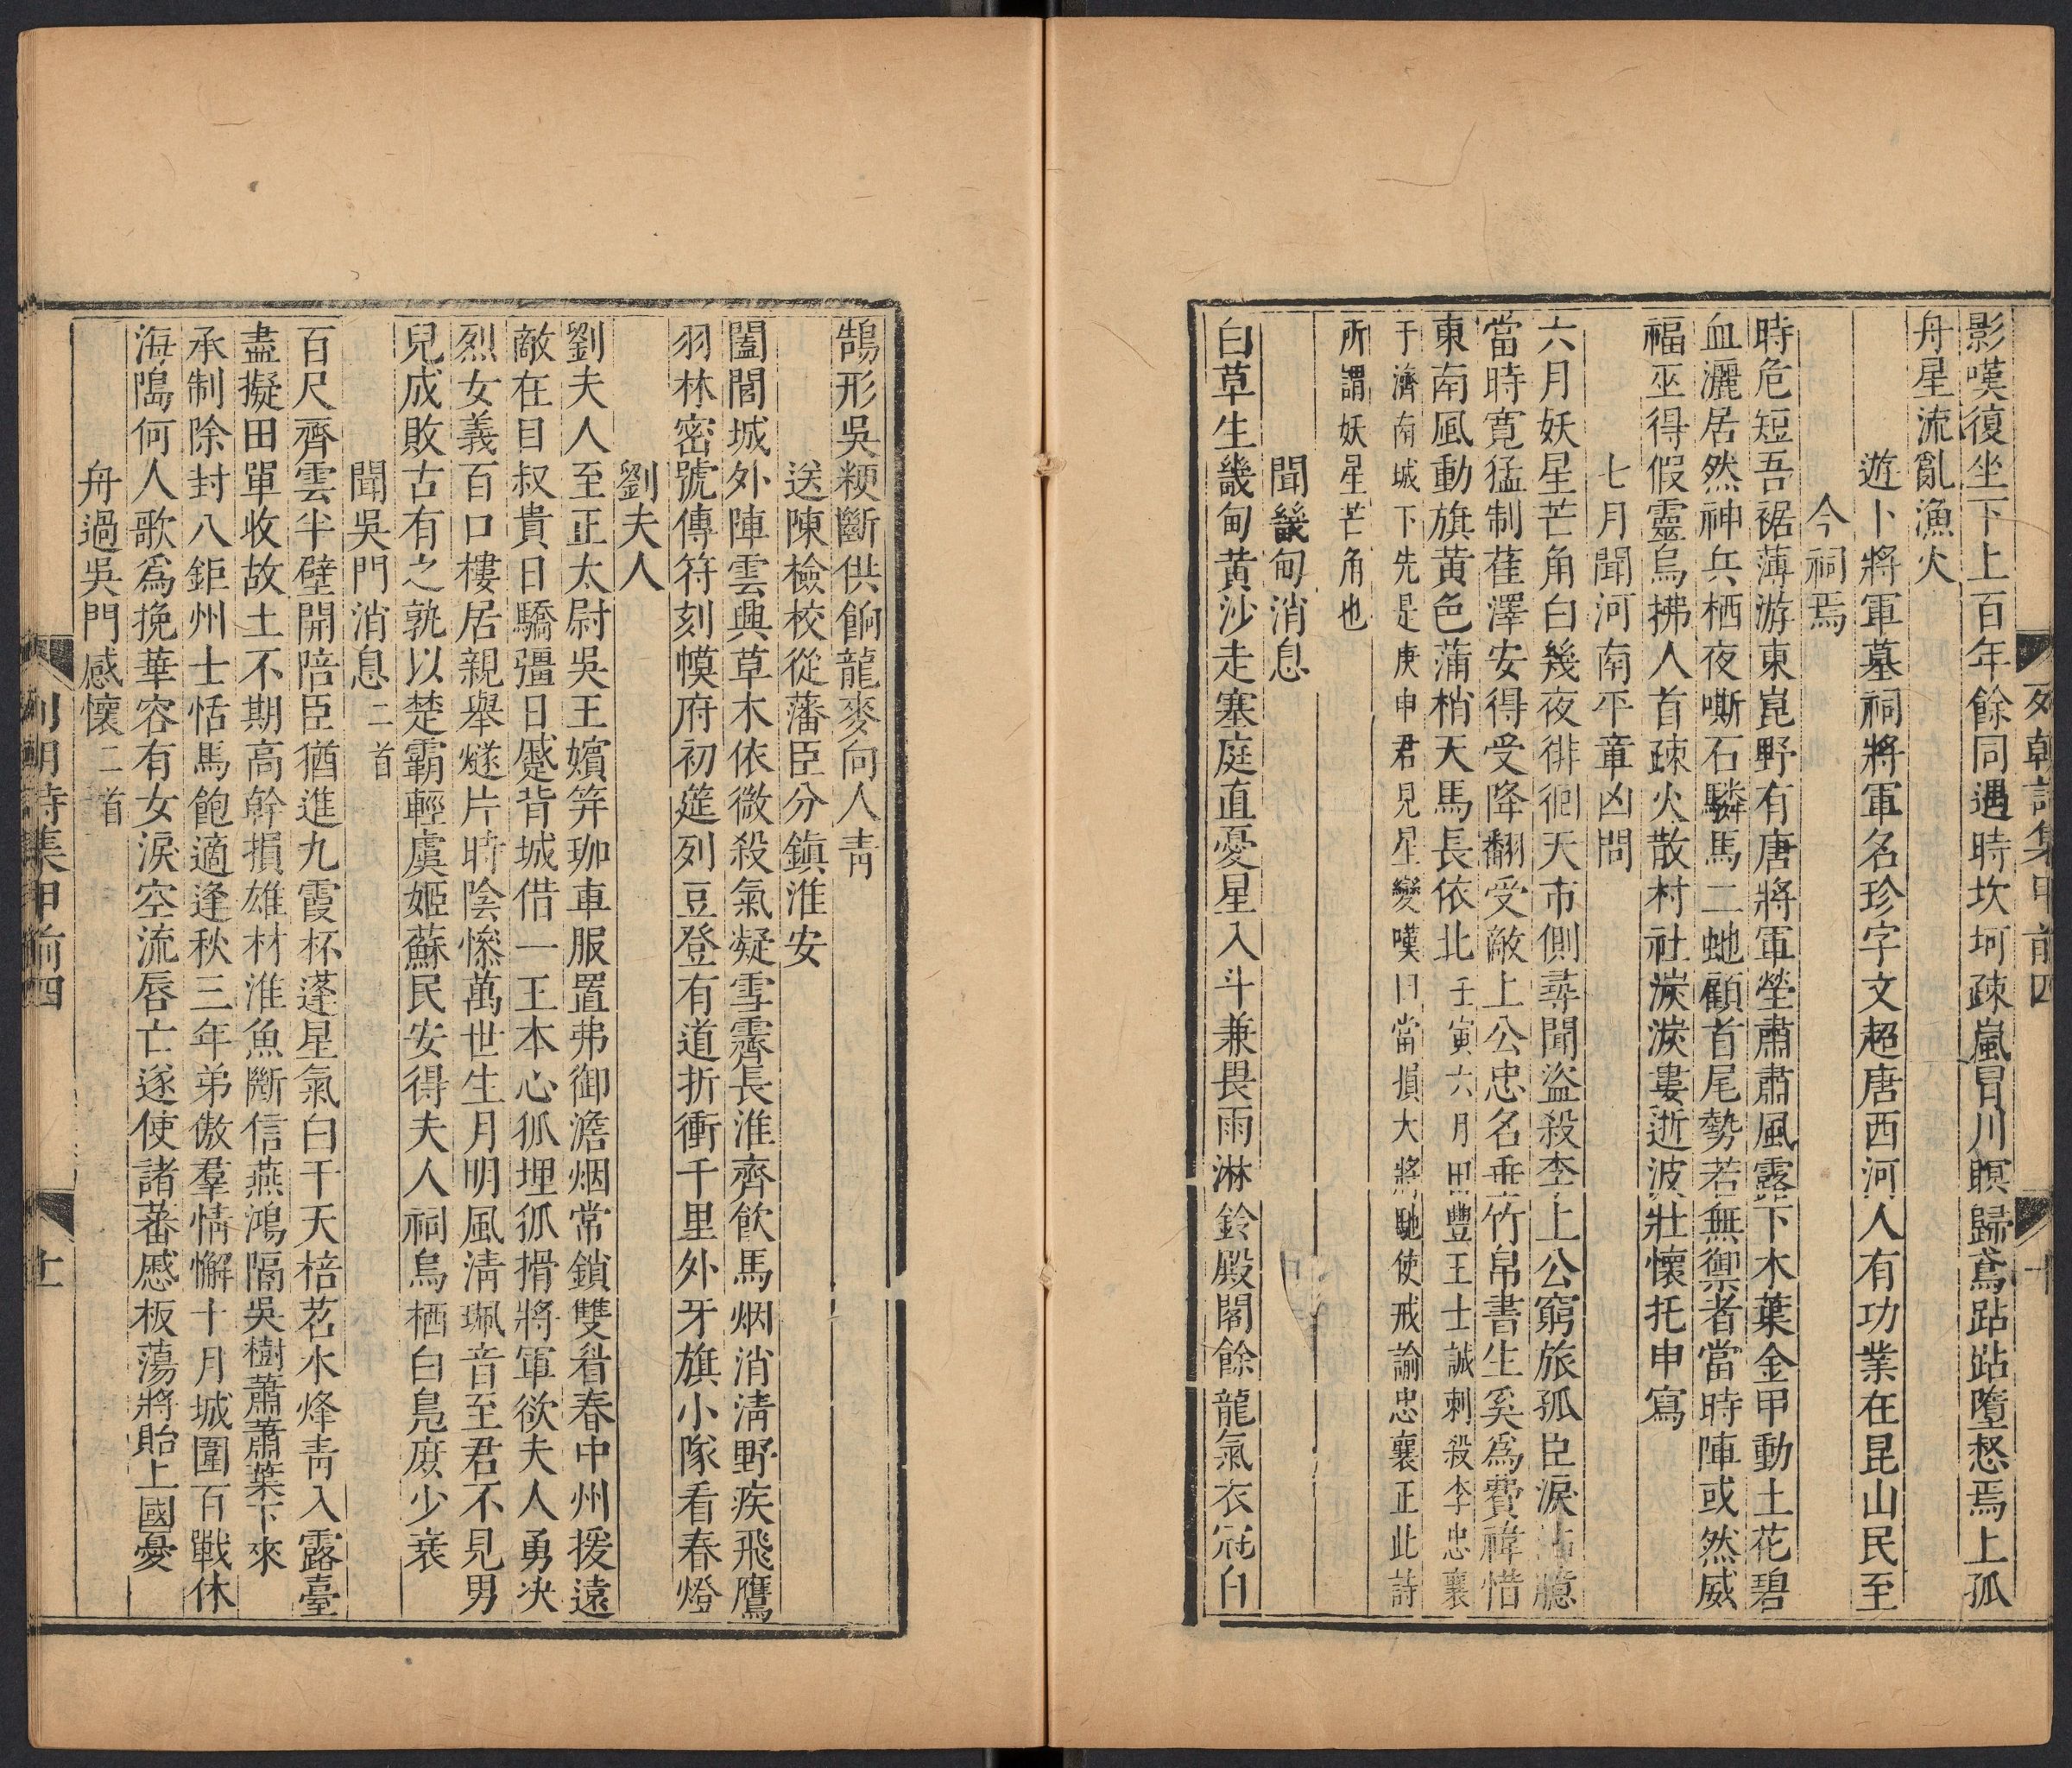 列朝詩集甲前四
十
影嘆復坐下上百年餘同遇時坎坷疎嵐冒川暝歸鳶跕跕墮愁焉上孤
舟星流亂漁火
遊卜將軍墓祠將軍名珍字文超唐西河人有功業在昆山民至
今祠焉
時危短吾裾薄游東崑野有唐將軍塋肅肅風露下木葉金甲動土花碧
血灑居然神兵栖夜嘶石驎馬二虵顧首尾勢若無禦者當時陣或然威
福巫得假靈烏拂人首疎火散村社漃漃婁逝波壯懷托申寫
七月聞河南平章凶問
六月妖星芒角白幾夜徘徊天市側尋聞盜殺李上公窮旅孤臣淚沾臆
當時寬猛制萑澤安得受降翻受敵上公忠名垂竹帛書生奚爲費禕惜
東南風動旗黃色蒲梢天馬長依北壬寅六月田豐王士誠刺殺李忠襄
于濟南城下先是庚申君見星變嘆曰當損大將馳使戒諭忠襄正此詩
所謂妖星芒角也
聞畿甸消息
白草生畿甸黃沙走塞庭直憂星入斗兼畏雨淋鈴殿閣餘龍氣衣冠自
鵠形吳粳斷供餉龍麥向人靑
送陳檢校從藩臣分鎭淮安
闔閭城外陣雲興草木依微殺氣凝雪霽長淮齊飮馬烟消淸野疾飛鷹
羽林密號傳符刻幙府初筵列豆登有道折衝千里外牙旗小隊看春燈
劉夫人
劉夫人至正太尉吳王嬪笄珈車服置弗御澹烟常鎖雙眉春中州援遠
敵在目叔貴日驕彊日蹙背城借一王本心狐埋狐搰將軍欲夫人勇决
烈女義百口樓居親舉燧片時陰慘萬世生月明風淸珮音至君不見男
兒成敗古有之孰以楚霸輕虞姬蘇民安得夫人祠烏栖白鳧庻少衰
聞吳門消息二首
百尺齊雲半壁開陪臣猶進九霞杯蓬星氣白干天棓茗水烽靑入露臺
盡擬田單收故土不期高幹損雄材淮魚斷信燕鴻隔吳樹蕭蕭葉下來
承制除封八鉅州士恬馬飽適逢秋三年弟傲羣情懈十月城圍百戰休
海隝何人歌爲挽華容有女淚空流唇亡遂使諸蕃慼板蕩將貽上國憂
舟過吳門感懷二首
列朝詩集甲前四
十一